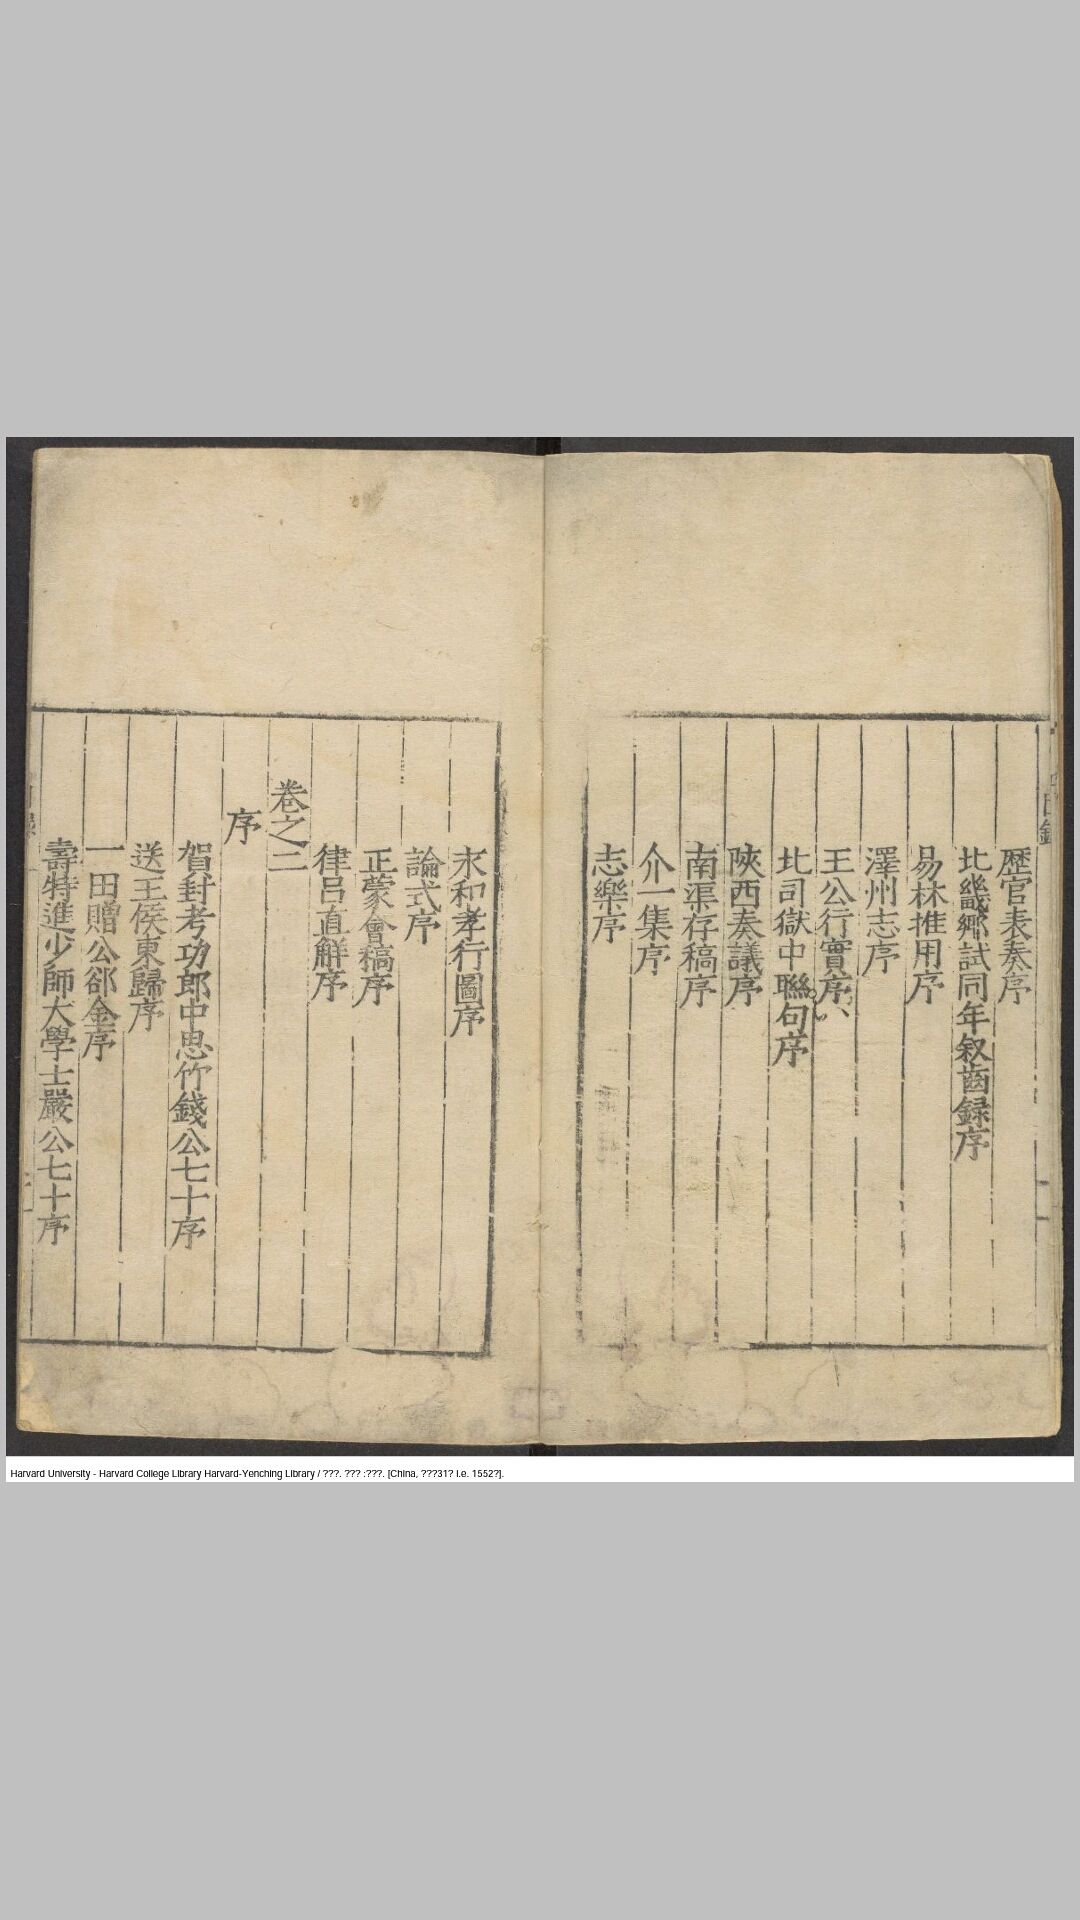 歷官表奏序
北畿鄉試同年叙齒録序
易林推用序
澤州志序
王公行實序
北司獄中聮句序
陜西奏議序
南渠存稿序
介一集序
志樂序
永和孝行圖序
論式序
正蒙會稿序
律呂直觧序
卷之二
序
賀封考功郎中思竹錢公七十序
送王侯東歸序
一田贈公郤金序
壽特進少師大學士嚴公七十序
Harvard University - Harvard College Library Harvard-Yenching Library / ???. ??? :???. [China, ???31? i.e. 1552?].